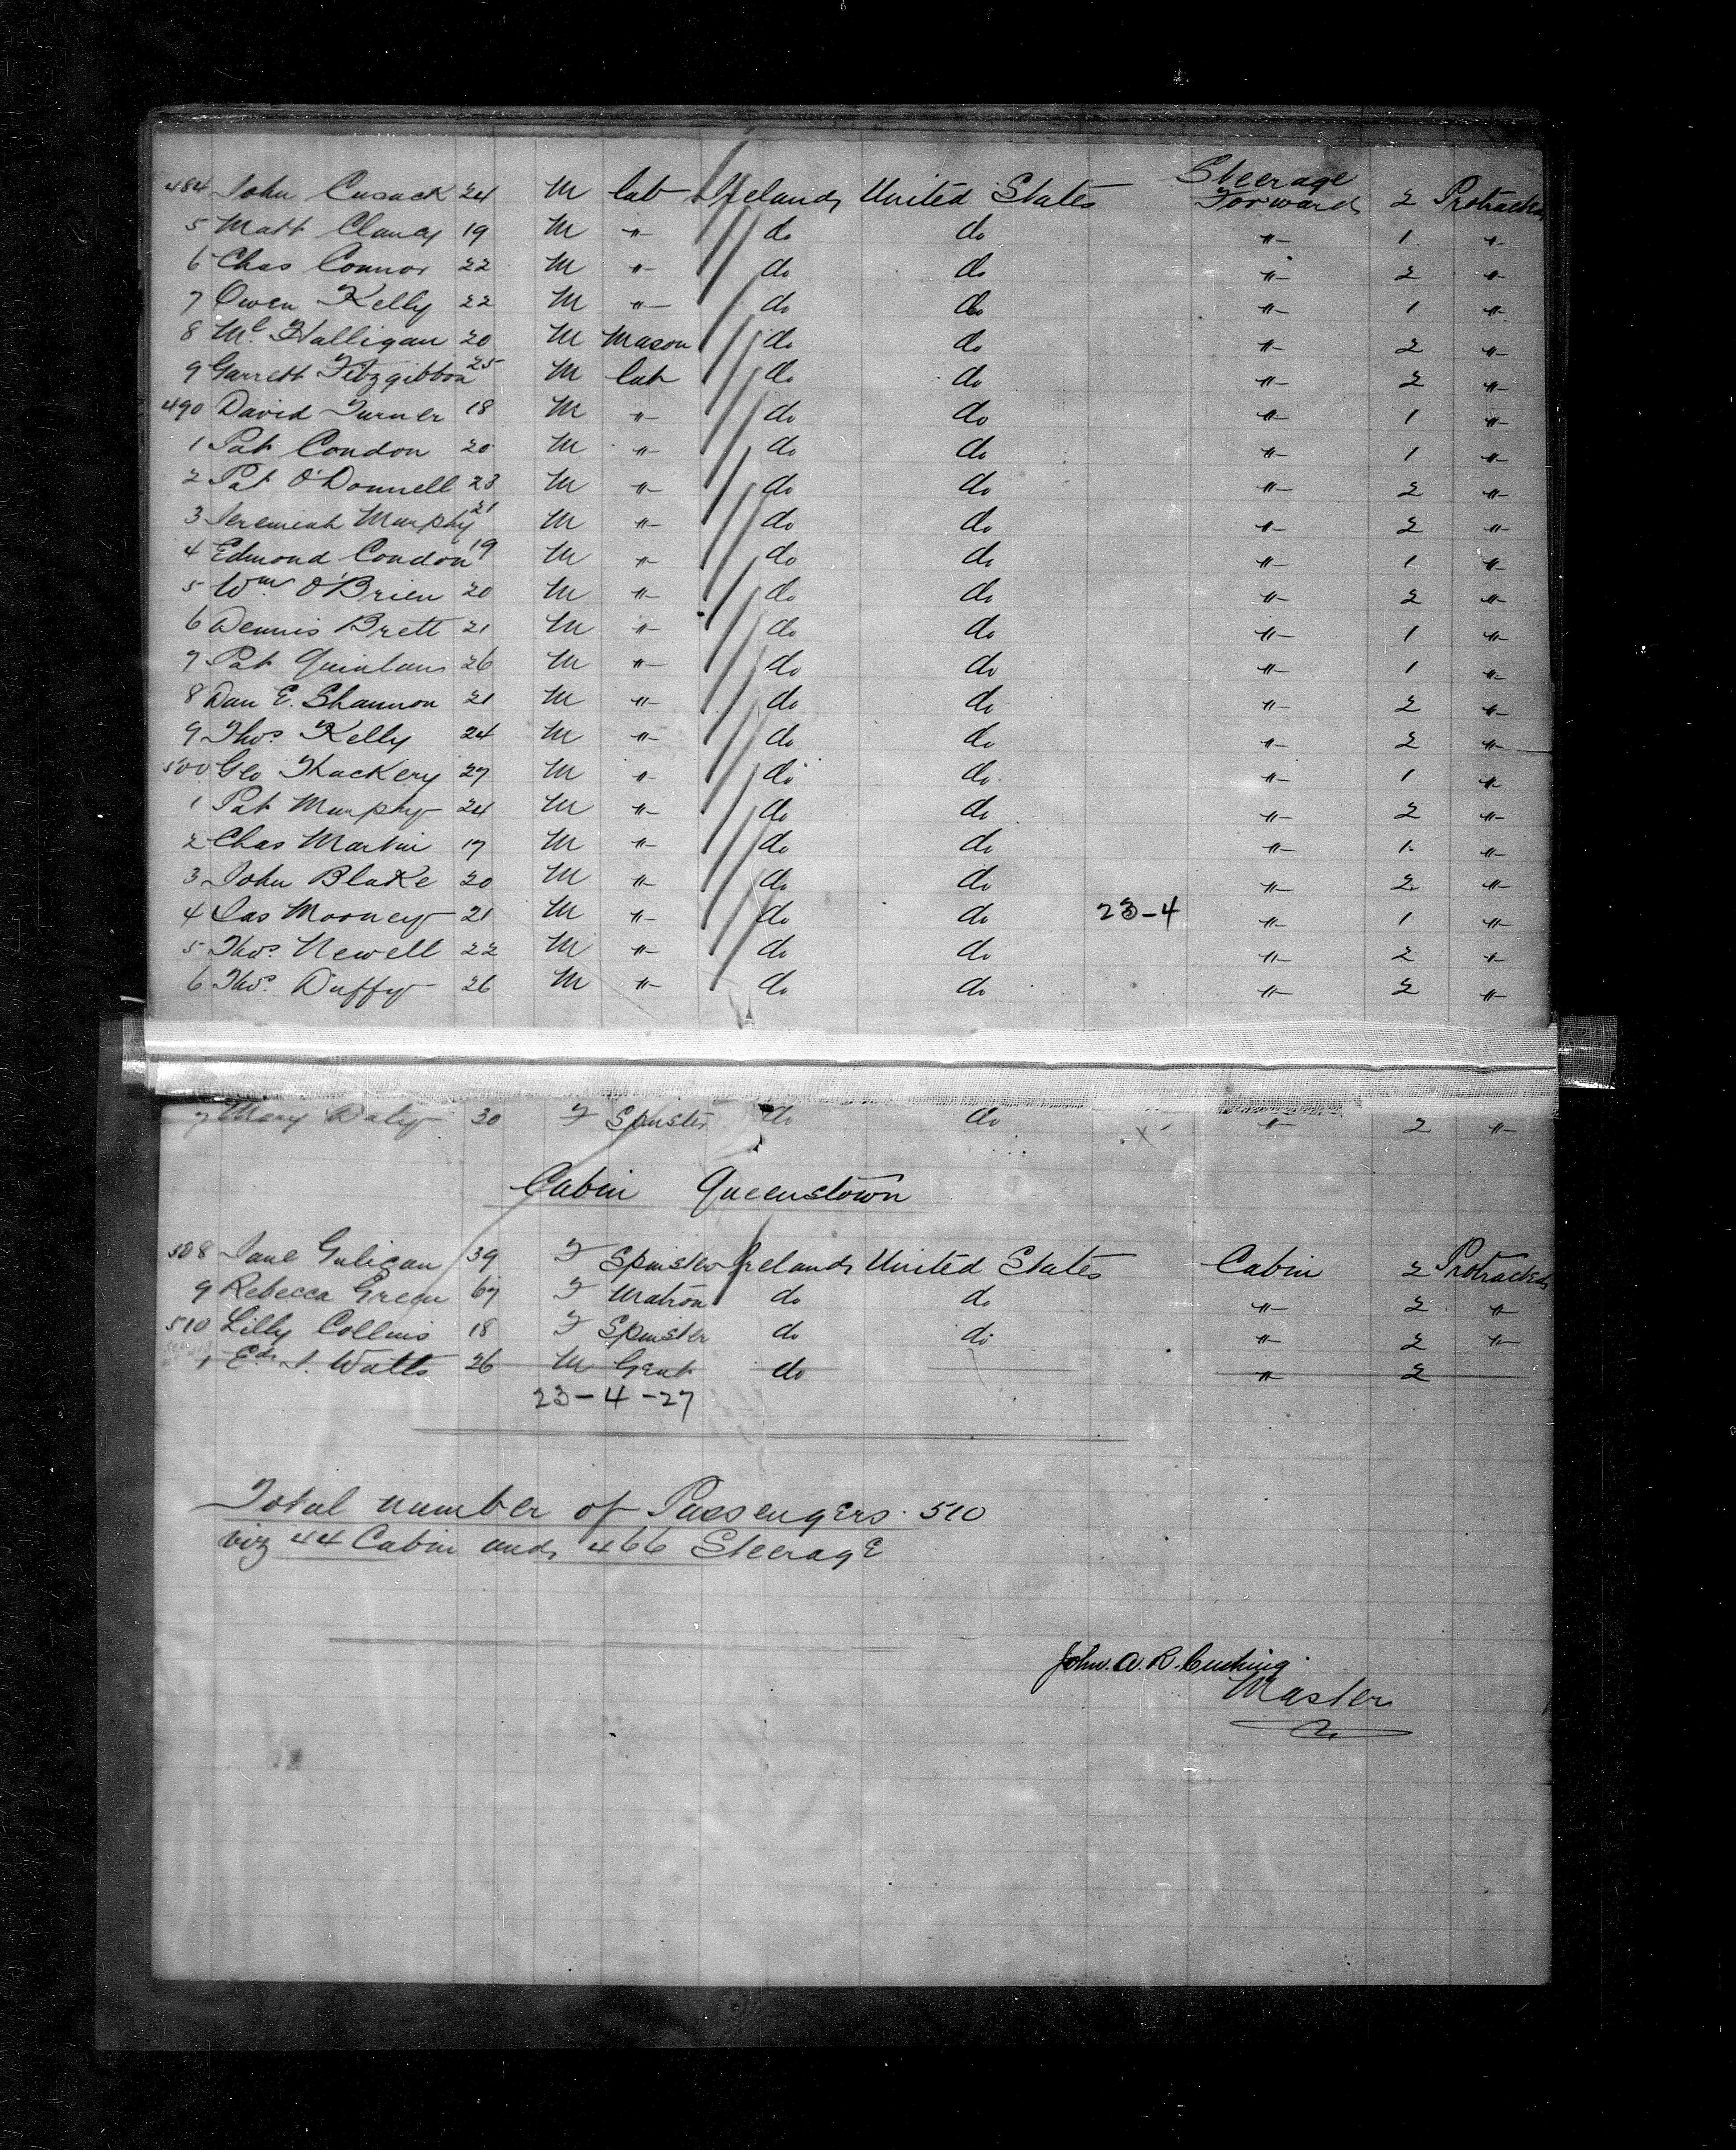 484 John Cusack 24 M lab Ireland United States Steerage Forward 2 Protracted
5 Matt Clancy 19 M " do do " 1 "
6 Chas Connor 22 M " do do " 2 "
7 Owen Kelly 22 M " do do " 1 "
8 Ml Halligan 20 M Mason do do " 2 "
9 Garrett Fitzgibbon 25 M lab do do " 2 "
490 David Turner 18 M " do do " 1 "
1 Pat Condon 20 M " do do " 1 "
2 Pat O'Donnell 23 M " do do " 2 "
3 Jeremiah Murphy 21 M " do do " 2 "
4 Edmond Condon 19 M " do do " 1 "
5 Wm O'Brien 20 M " do do " 2 "
6 Dennis Brett 21 M " do do " 1 "
7 Pat Quinlan 26 M " do do " 1 "
8 Dan E. Shannon 21 M " do do " 2 "
9 Thos Kelly 24 M " do do " 2 "
500 Geo Thackery 27 M " do do " 1 "
1 Pat Murphy 24 M " do do " 2 "
2 Chas Martin 17 M " do do " 1 "
3 John Blake 20 M " do do " 2 "
4 Jas Mooney 21 M " do do 23-4 " 1 "
5 Thos Newell 22 M " do do " 2 "
6 Thos Duffy 26 M " do do " 2 "
7 Mary Daly 30 F Spinster do do " 2 "
Cabin Queenstown
508 Jane Guligan 39 F Spinster Ireland United States Cabin 2 Protracted
9 Rebecca Green 67 F Matron do do " 2 "
510 Lilly Collins 18 F Spinster do do " 2 "
1 Ed. J. Watts 26 M Gent do " 2
23-4-27
Total number of Passengers. 510
viz 44 Cabin and 466 Steerage
John. A. R. Cushing.
Master